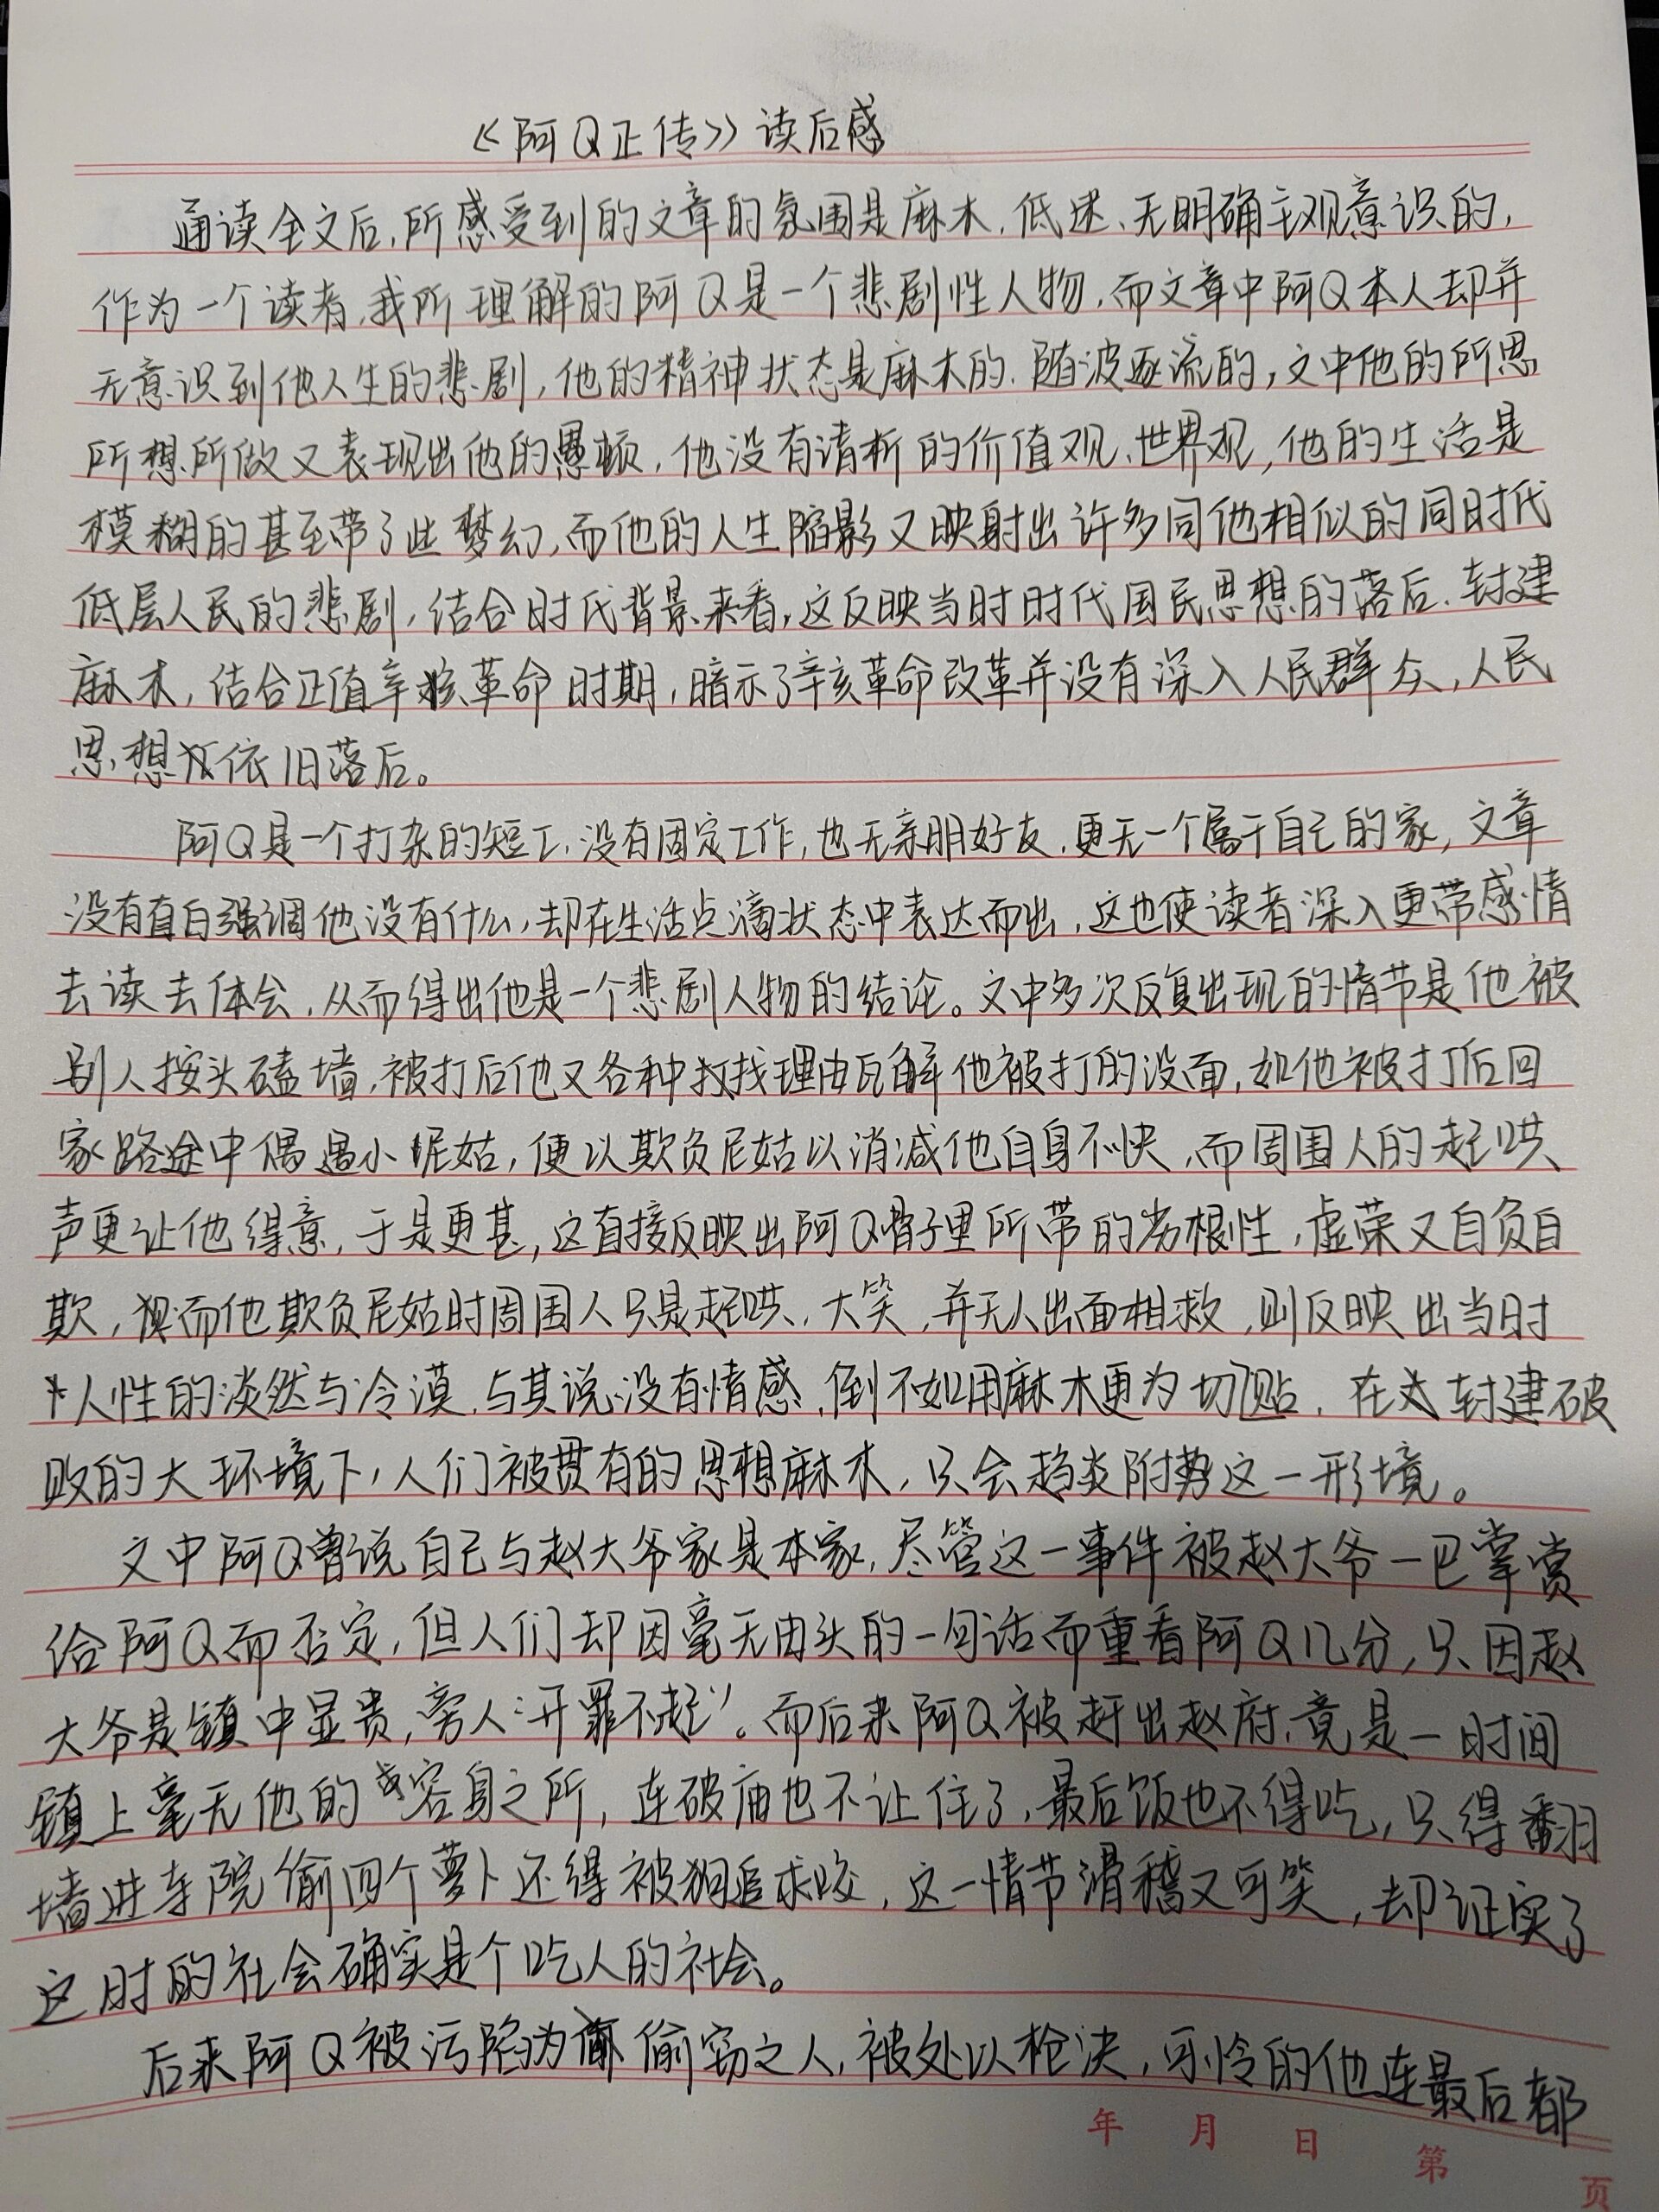 《阿Q正传》读后感
通读全文后,所感受到的文章的氛围是麻木、低迷、无明确主观意识的,
作为一个读者,我所理解的阿Q是一个悲剧性人物,而文章中阿Q本人却并
无意识到他人生的悲剧,他的精神状态是麻木的、随波逐流的,文中他的所思
所想所做又表现出他的愚顿,他没有清析的价值观、世界观,他的生活是
模糊的甚至带了些梦幻,而他的人生缩影又映射出许多同他相似的同时代
低层人民的悲剧,结合时代背景来看,这反映当时时代国民思想的落后、封建
麻木,结合正值辛亥革命时期,暗示了辛亥革命改革并没有深入人民群众,人民
思想依旧落后。
阿Q是一个打杂的短工,没有固定工作,也无亲朋好友,更无一个属于自己的家,文章
没有直白强调他没有什么,却在生活点滴状态中表达而出,这也使读者深入更带感情
去读去体会,从而得出他是一个悲剧人物的结论。文中多次反复出现的情节是他被
别人按头磕墙,被打后他又各种找理由瓦解他被打的没面,如他被打后回
家路途中偶遇小尼姑,便以欺负尼姑以消减他自身不快,而周围人的起哄
声更让他得意,于是更甚,这直接反映出阿Q骨子里所带的劣根性,虚荣又自负自
欺,而他欺负尼姑时周围人只是起哄、大笑,并无人出面相救,则反映出当时
人性的淡然与冷漠,与其说没有情感,倒不如用麻木更为切贴,在封建破
败的大环境下,人们被贯有的思想麻木,只会趋炎附势这一形境。
文中阿Q曾说自己与赵大爷家是本家,尽管这一事件被赵大爷一巴掌赏
给阿Q而否定,但人们却因毫无由头的一句话而重看阿Q几分,只因赵
大爷是镇中显贵,旁人“开罪不起”。而后来阿Q被赶出赵府,竟是一时间
镇上毫无他的容身之所,连破庙也不让住了,最后饭也不得吃,只得翻
墙进寺院偷四个萝卜还得被狗追求咬,这一情节滑稽又可笑,却证实了
这时的社会确实是个吃人的社会。
后来阿Q被污陷为偷窃之人,被处以枪决,可怜的他连最后都
年 月 日 第 页